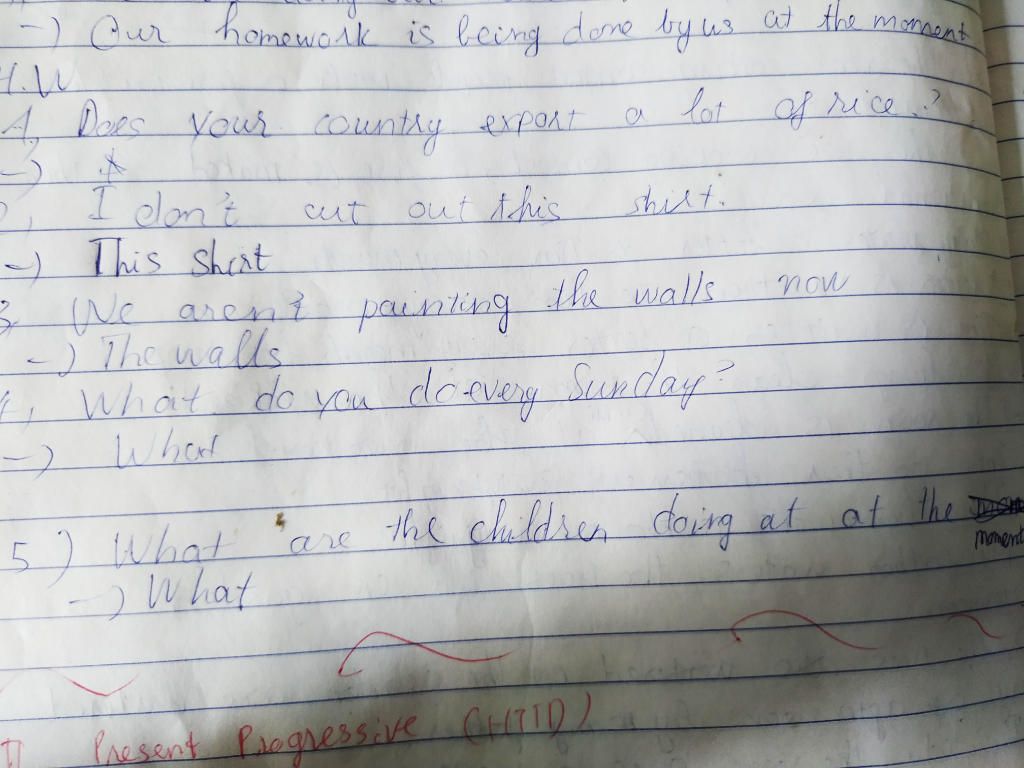 -) Our homework is being done by us at the moment
H.W
1, Does your country export a lot of rice?
-)
2, I don't cut out this shirt.
-) This shirt
3, We aren't painting the walls now
-) The walls
4, What do you do every Sunday?
-) What
5) What are the children doing at at the moment
-) What
II Present Progressive (HTTD)